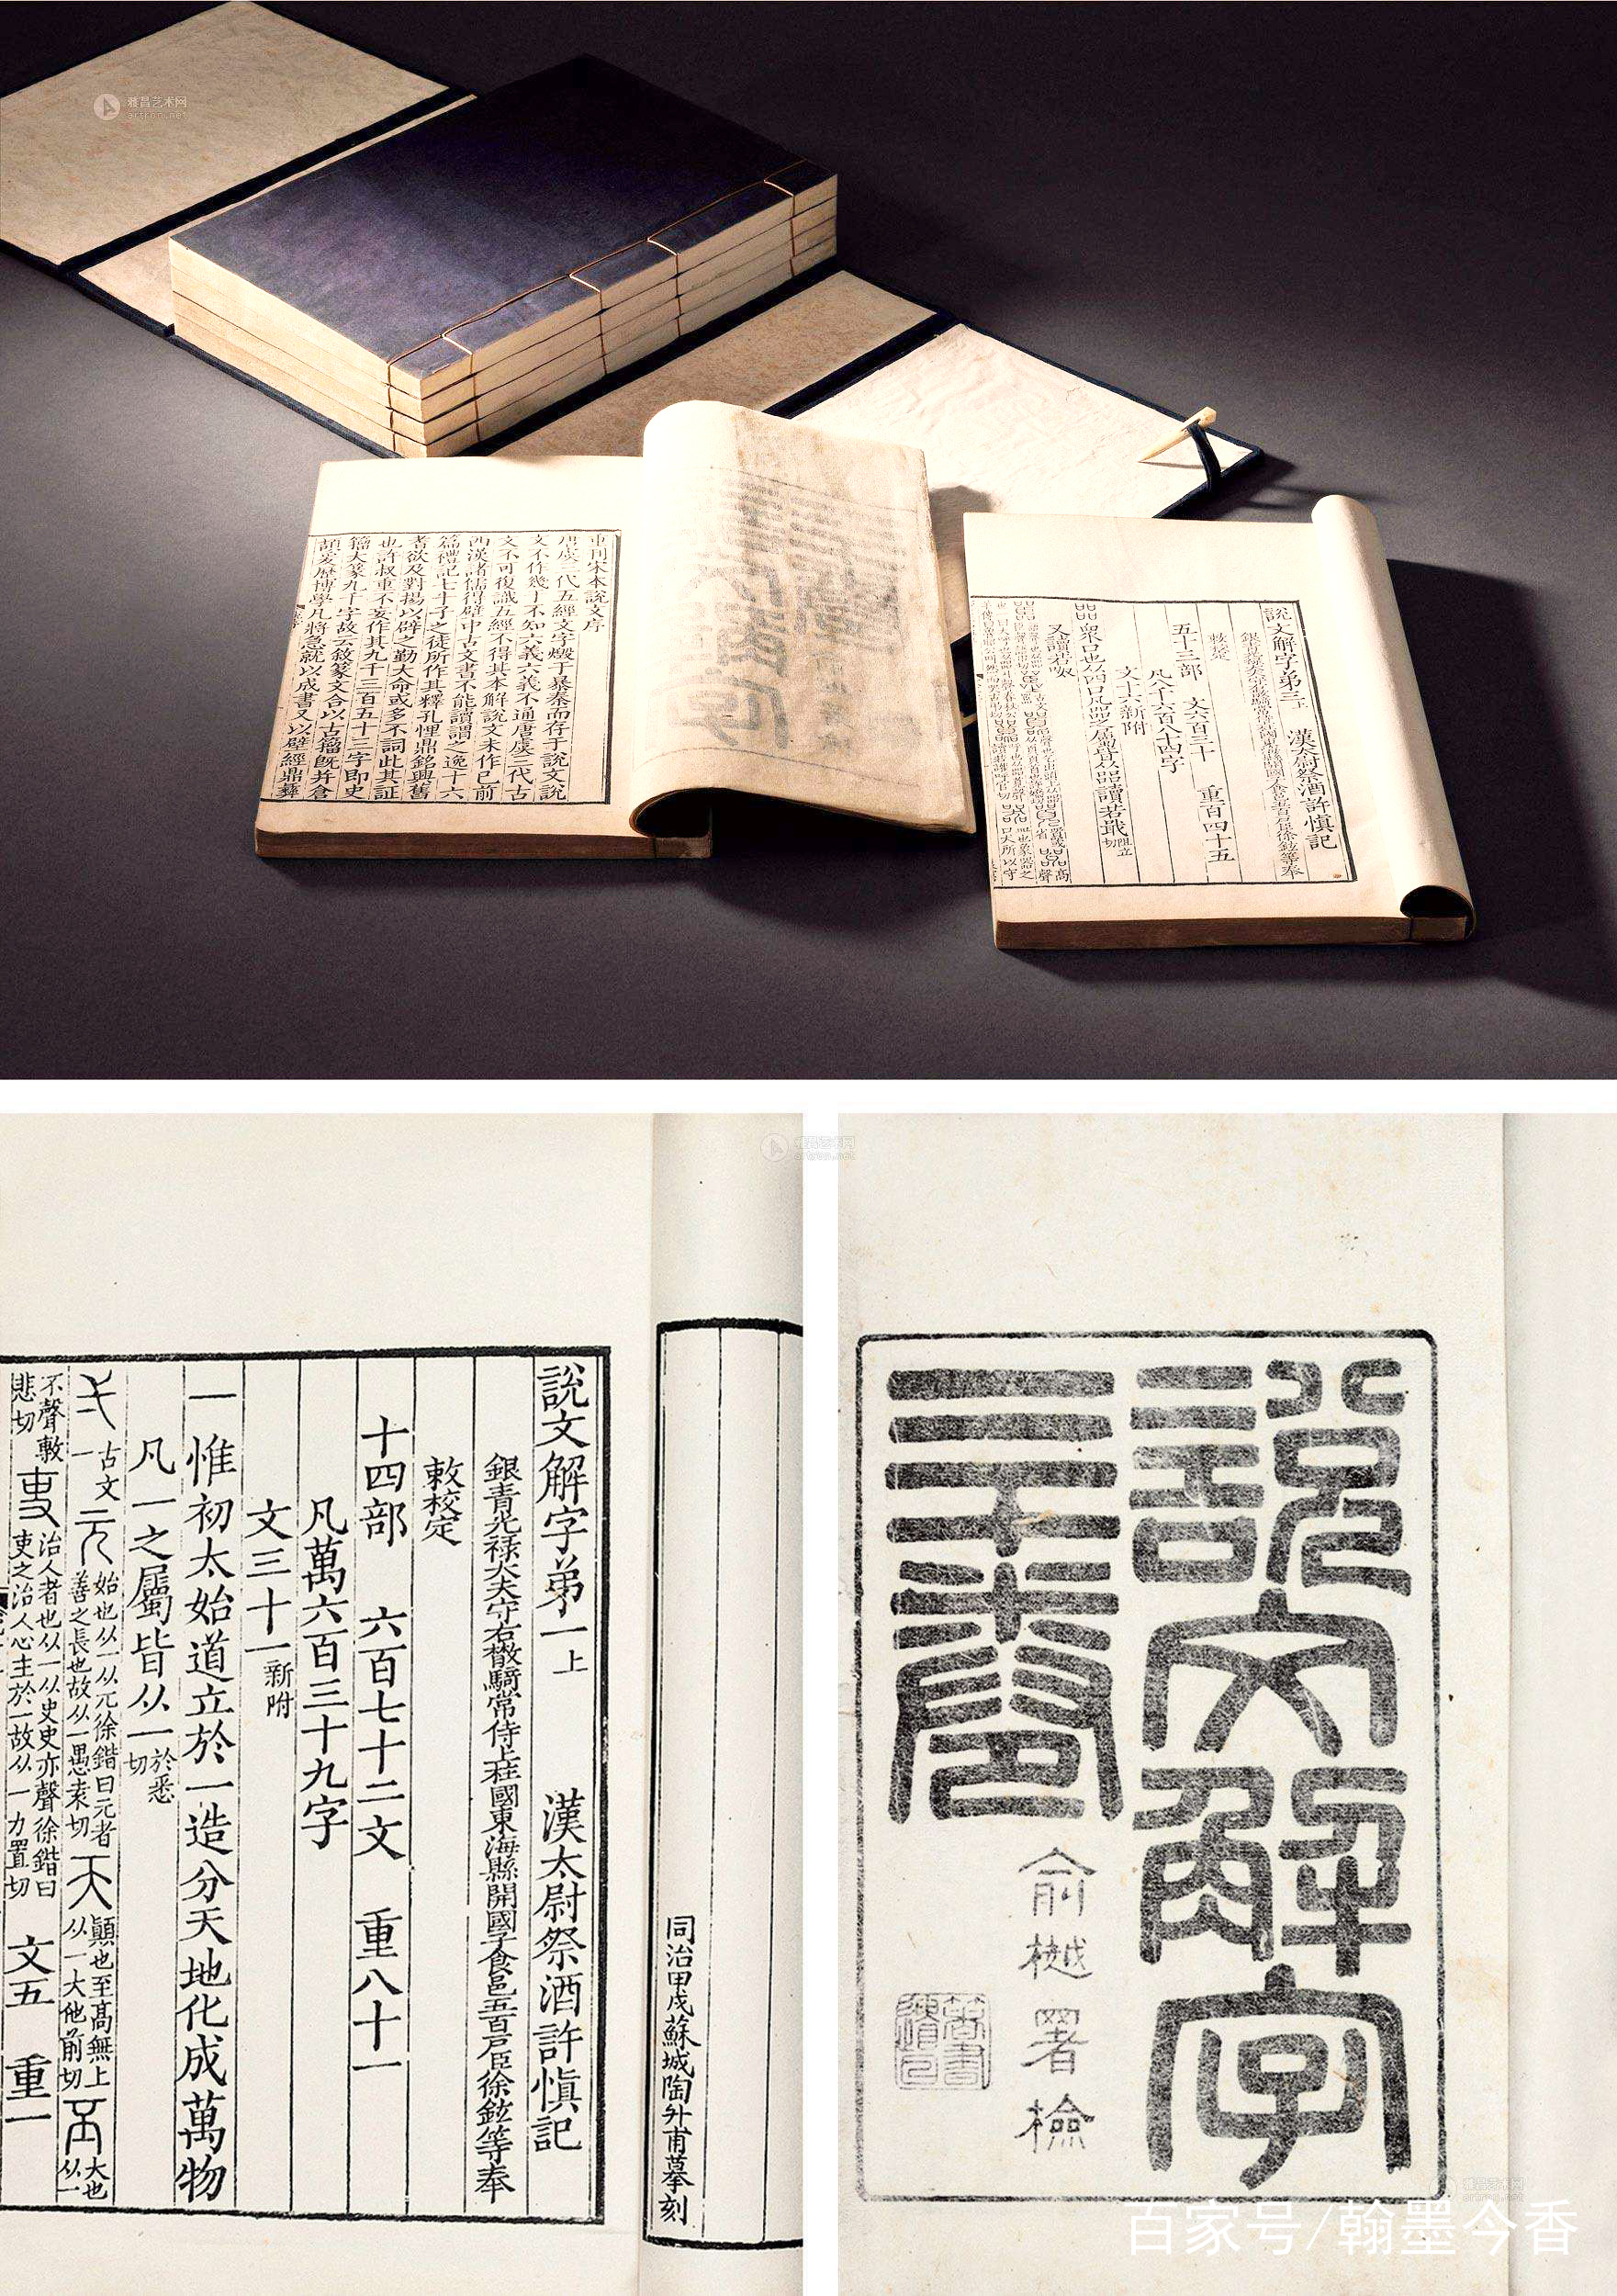 雅昌艺术网
artron.net
重刊宋本說文序
唐虞三代五經文字燬于暴秦而存于說文說
文不作幾于不知六義六義不通唐虞三代古
文不可復識五經不得其本解說文未作已前
西漢諸儒得壁中古文書不能讀謂之逸十六
篇禮記七十子之徒所作其釋孔悝鼎銘興舊
耆欲及對揚以辟之勤大命或多不詞此其証
也許叔重不妄作其九千三百五十三字即史
籀大篆九千字故云敘篆文合以古籀既并倉
頡爰歷博學凡將急就以成書又以壁經鼎彝
說文解字弟三上 漢太尉祭酒許慎記
銀青光祿大夫守右散騎常侍上柱國東海縣開國子食邑五百戶臣徐鉉等奉
敕校定
五十三部 文六百三十 重百四十五
凡八千六百八十四字
文十六新附
㗊眾口也从四口凡㗊之屬皆从㗊讀若戢阻立切
又讀若呶
雅昌艺术网
artron.net
同治甲戌蘇城陶升甫摹刻
說文解字弟一上 漢太尉祭酒許慎記
銀青光祿大夫守右散騎常侍上柱國東海縣開國子食邑五百戶臣徐鉉等奉
敕校定
十四部 六百七十二文 重八十一
凡萬六百三十九字
文三十一新附
一惟初太始道立於一造分天地化成萬物
凡一之屬皆从一於悉切
弌古文一元始也从一从兀徐鍇曰元者善之長也故从一愚袁切天顚也至高無上从一大他前切丕大也从一
不聲敷悲切吏治人者也从一从史史亦聲徐鍇曰吏之治人心主於一故从一力置切 文五 重一
說文解字
三十弖
俞樾署檢
雅昌艺术网
artron.net
百家号/翰墨今香